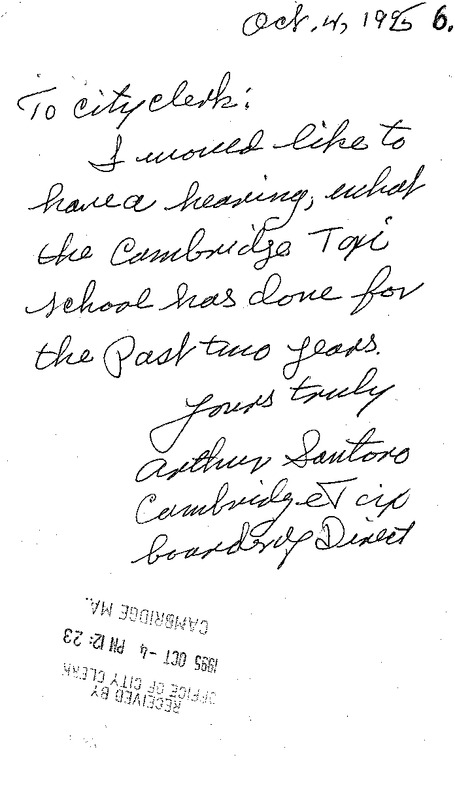 Oct. 4, 1995 6.
To city clerk:
I would like to
have a hearing, what
the Cambridge Taxi
school has done for
the Past two years.
yours truly
Arthur Santoro
Cambridge
board of Direct
CAMBRIDGE MA.
1995 OCT -4 PM 12: 23
OFFICE OF CITY CLERK
RECEIVED BY